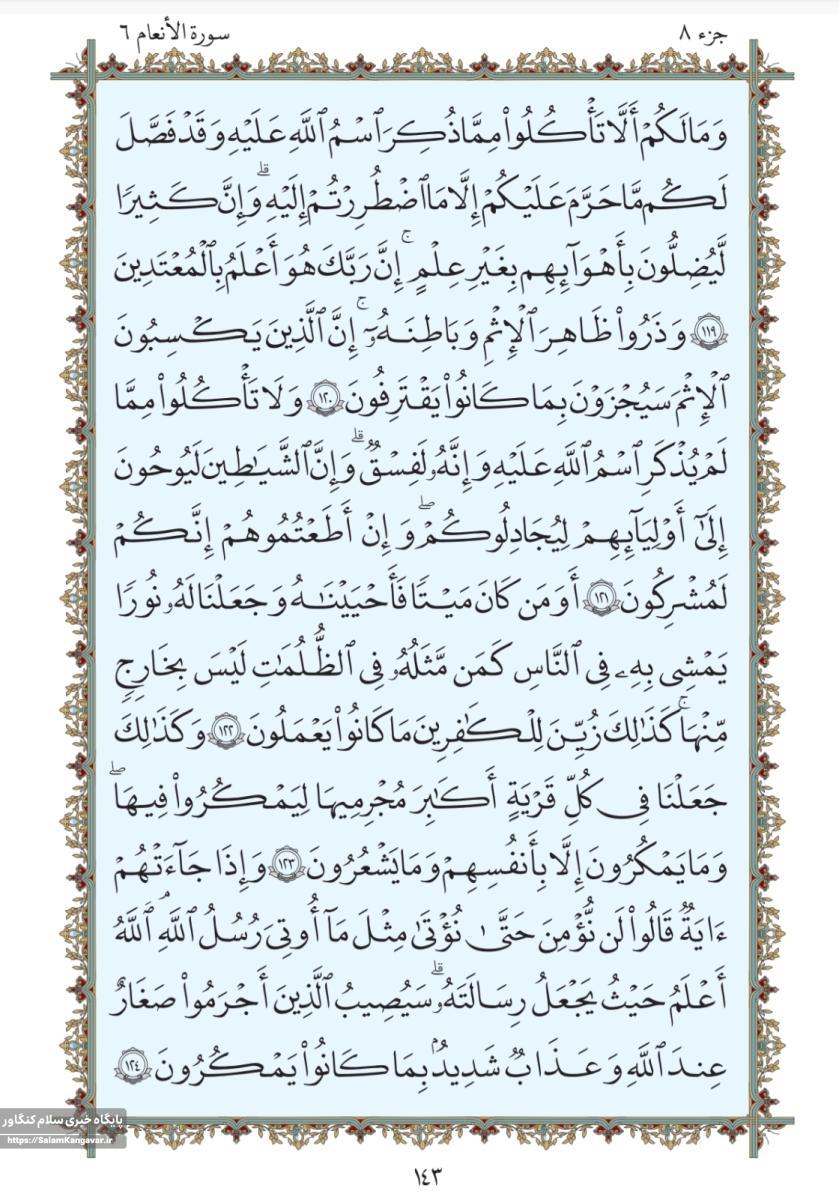 جزء ٨
سورة الأنعام ٦
وَمَا لَكُمْ أَلَّا تَأْكُلُوا۟ مِمَّا ذُكِرَ ٱسْمُ ٱللَّهِ عَلَيْهِ وَقَدْ فَصَّلَ
لَكُم مَّا حَرَّمَ عَلَيْكُمْ إِلَّا مَا ٱضْطُرِرْتُمْ إِلَيْهِ ۗ وَإِنَّ كَثِيرًا
لَّيُضِلُّونَ بِأَهْوَآئِهِم بِغَيْرِ عِلْمٍ ۚ إِنَّ رَبَّكَ هُوَ أَعْلَمُ بِٱلْمُعْتَدِينَ
١١٩ وَذَرُوا۟ ظَٰهِرَ ٱلْإِثْمِ وَبَاطِنَهُۥٓ ۚ إِنَّ ٱلَّذِينَ يَكْسِبُونَ
ٱلْإِثْمَ سَيُجْزَوْنَ بِمَا كَانُوا۟ يَقْتَرِفُونَ ١٢٠ وَلَا تَأْكُلُوا۟ مِمَّا
لَمْ يُذْكَرِ ٱسْمُ ٱللَّهِ عَلَيْهِ وَإِنَّهُۥ لَفِسْقٌ ۗ وَإِنَّ ٱلشَّيَٰطِينَ لَيُوحُونَ
إِلَىٰٓ أَوْلِيَآئِهِمْ لِيُجَٰدِلُوكُمْ ۖ وَإِنْ أَطَعْتُمُوهُمْ إِنَّكُمْ
لَمُشْرِكُونَ ١٢١ أَوَمَن كَانَ مَيْتًا فَأَحْيَيْنَٰهُ وَجَعَلْنَا لَهُۥ نُورًا
يَمْشِى بِهِۦ فِى ٱلنَّاسِ كَمَن مَّثَلُهُۥ فِى ٱلظُّلُمَٰتِ لَيْسَ بِخَارِجٍ
مِّنْهَا ۚ كَذَٰلِكَ زُيِّنَ لِلْكَٰفِرِينَ مَا كَانُوا۟ يَعْمَلُونَ ١٢٢ وَكَذَٰلِكَ
جَعَلْنَا فِى كُلِّ قَرْيَةٍ أَكَٰبِرَ مُجْرِمِيهَا لِيَمْكُرُوا۟ فِيهَا ۖ
وَمَا يَمْكُرُونَ إِلَّا بِأَنفُسِهِمْ وَمَا يَشْعُرُونَ ١٢٣ وَإِذَا جَآءَتْهُمْ
ءَايَةٌ قَالُوا۟ لَن نُّؤْمِنَ حَتَّىٰ نُؤْتَىٰ مِثْلَ مَآ أُوتِىَ رُسُلُ ٱللَّهِ ۘ ٱللَّهُ
أَعْلَمُ حَيْثُ يَجْعَلُ رِسَالَتَهُۥ ۗ سَيُصِيبُ ٱلَّذِينَ أَجْرَمُوا۟ صَغَارٌ
عِندَ ٱللَّهِ وَعَذَابٌ شَدِيدٌۢ بِمَا كَانُوا۟ يَمْكُرُونَ ١٢٤
پایگاه خبری سلام کنگاور
https://SalamKangavar.ir
١٤٣